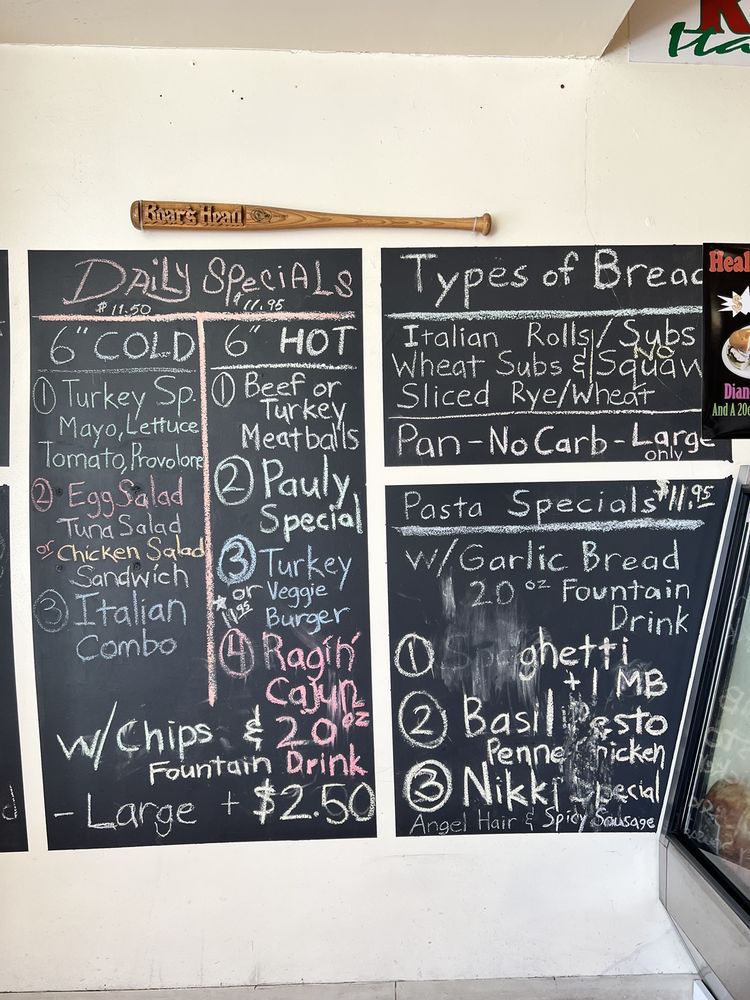 Boar's Head
DAiLY SPeCiALS
$11.50
$11.95
6" COLD
① Turkey Sp.
Mayo, Lettuce
Tomato, Provolone
② Egg Salad
Tuna Salad
or Chicken Salad
Sandwich
③ Italian
Combo
6" HOT
① Beef or
Turkey
Meatballs
② Pauly
Special
③ Turkey
or Veggie
11.95 Burger
④ Ragin'
Cajun
w/Chips & 20 oz
Fountain Drink
- Large + $2.50
Types of Bread
Italian Rolls/Subs
NO
Wheat Subs & Squaw
Sliced Rye/Wheat
Pan - No Carb - Large
only
Pasta Specials $11.95
w/Garlic Bread
20 oz Fountain
Drink
① Spaghetti
+1 MB
② Basil Pesto
Penne Chicken
③ Nikki Special
Angel Hair & Spicy Sausage
Heal
Dian
And A 20